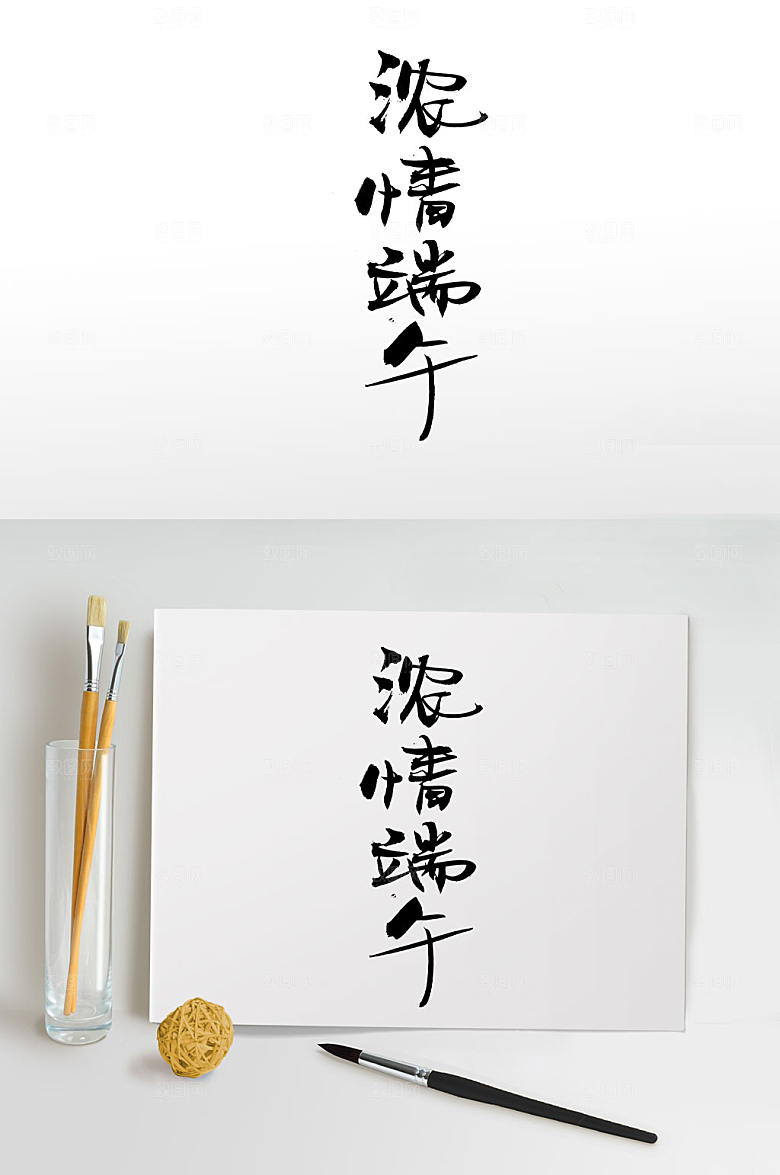 浓情端午
浓情端午